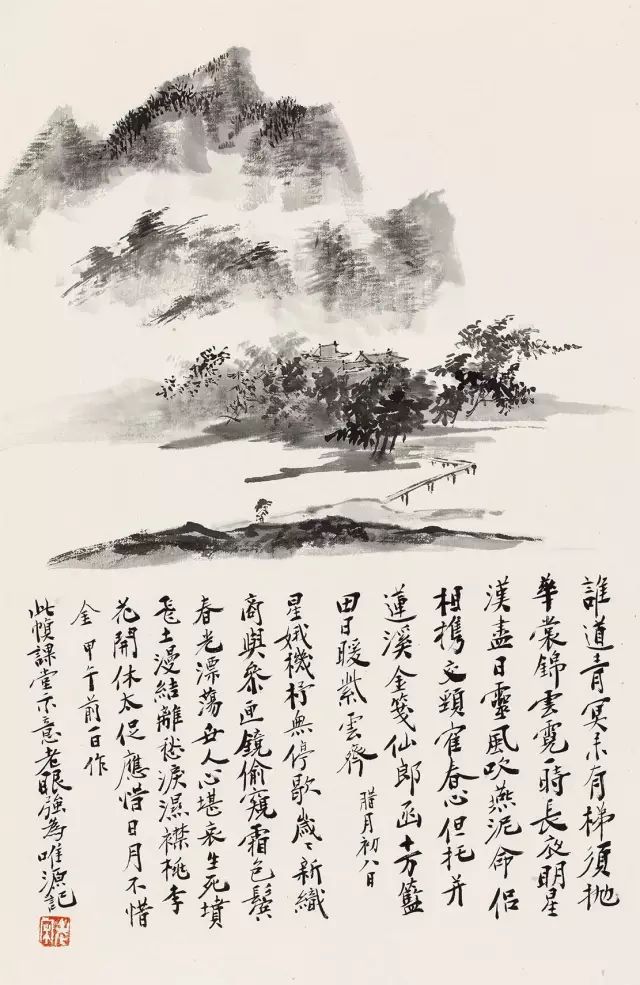 誰道青冥未有梯須拋
華裳錦雲霓一時長夜明星
漢盡日靈風吹燕泥命侶
相攜交頸宿春心但托并
蓮溪金箋仙郎函十方籃
田日暖紫雲齊 腊月初八日
星娥機杼無停歇歲〻新織
商與參画鏡偷窺霜色鬢
春光漂蕩世人心堪哀生死墳
土漫結離愁淚濕襟桃李
花開休太促應惜日月不惜
金 甲午前一日作
此幀課堂示意老眼強為唯源記